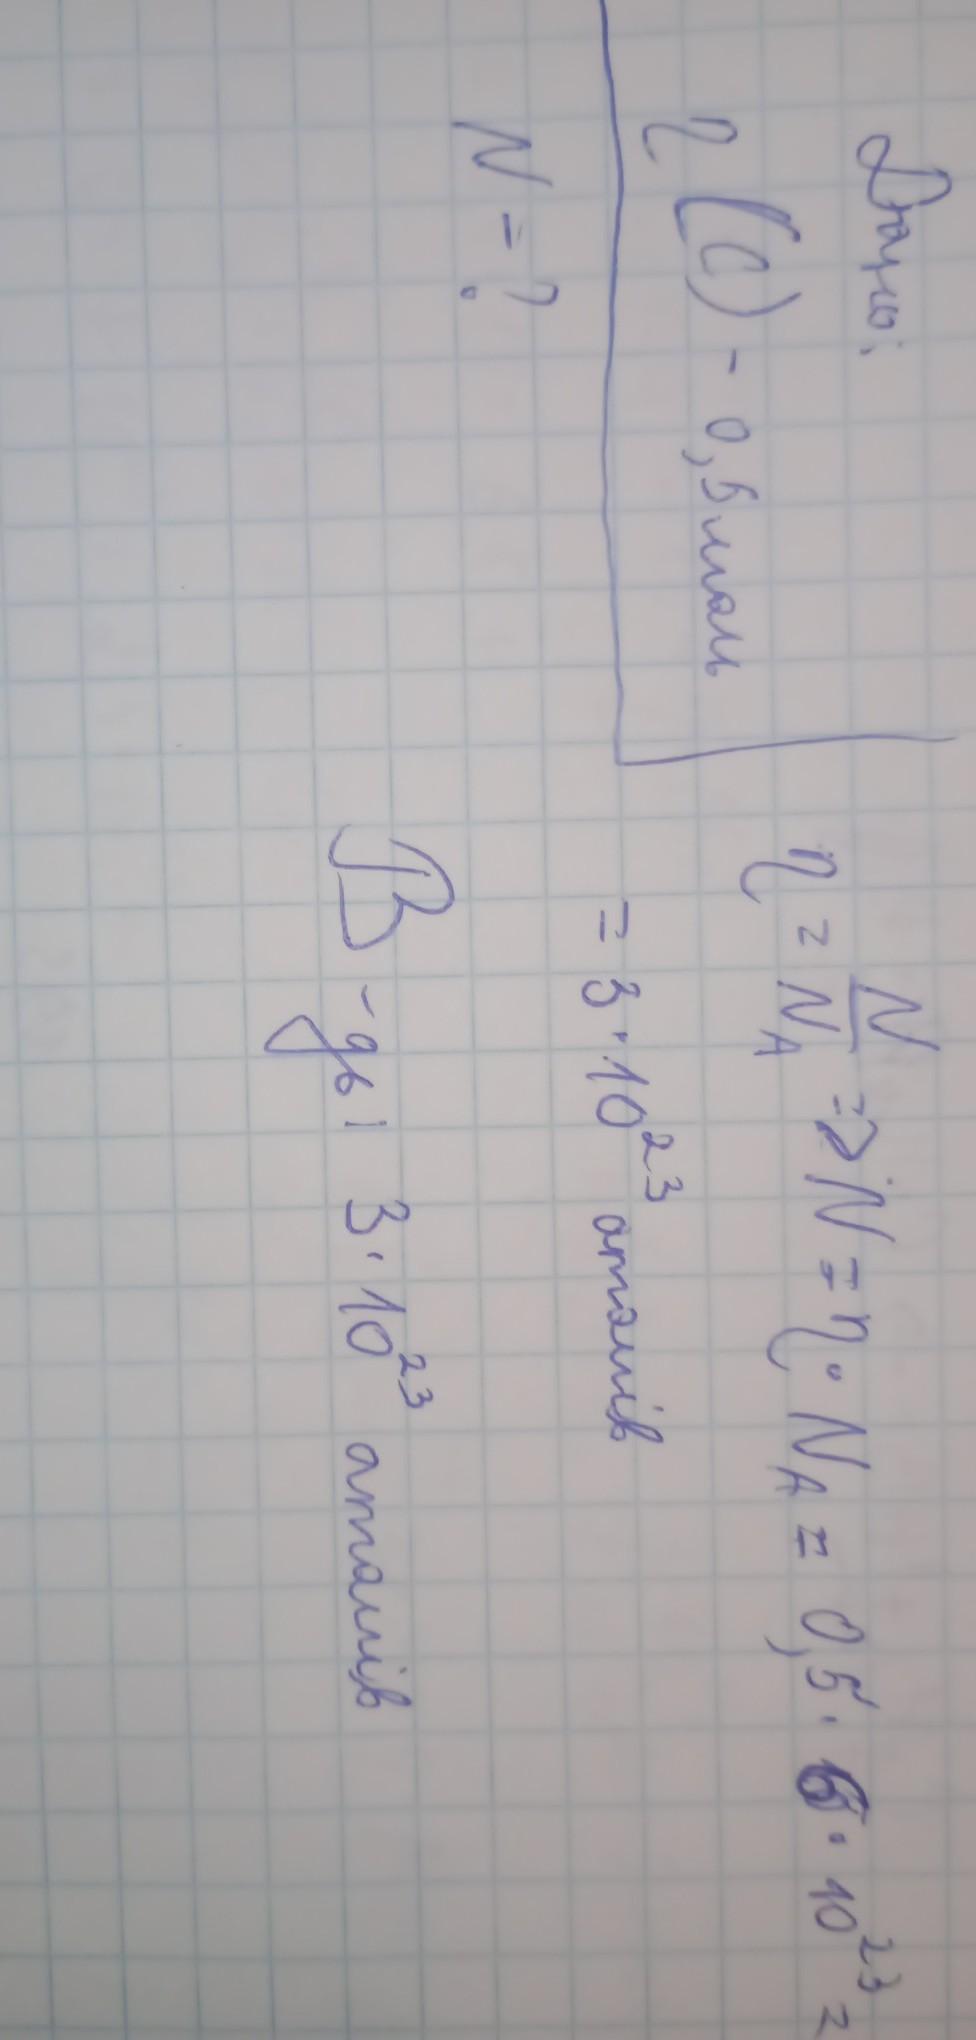 Дано:
η (C) - 0,5 моль
N = ?
η = N/N_A => N = η · N_A = 0,5 · 6 · 10²³ =
= 3 · 10²³ атомів
В-дь: 3 · 10²³ атомів